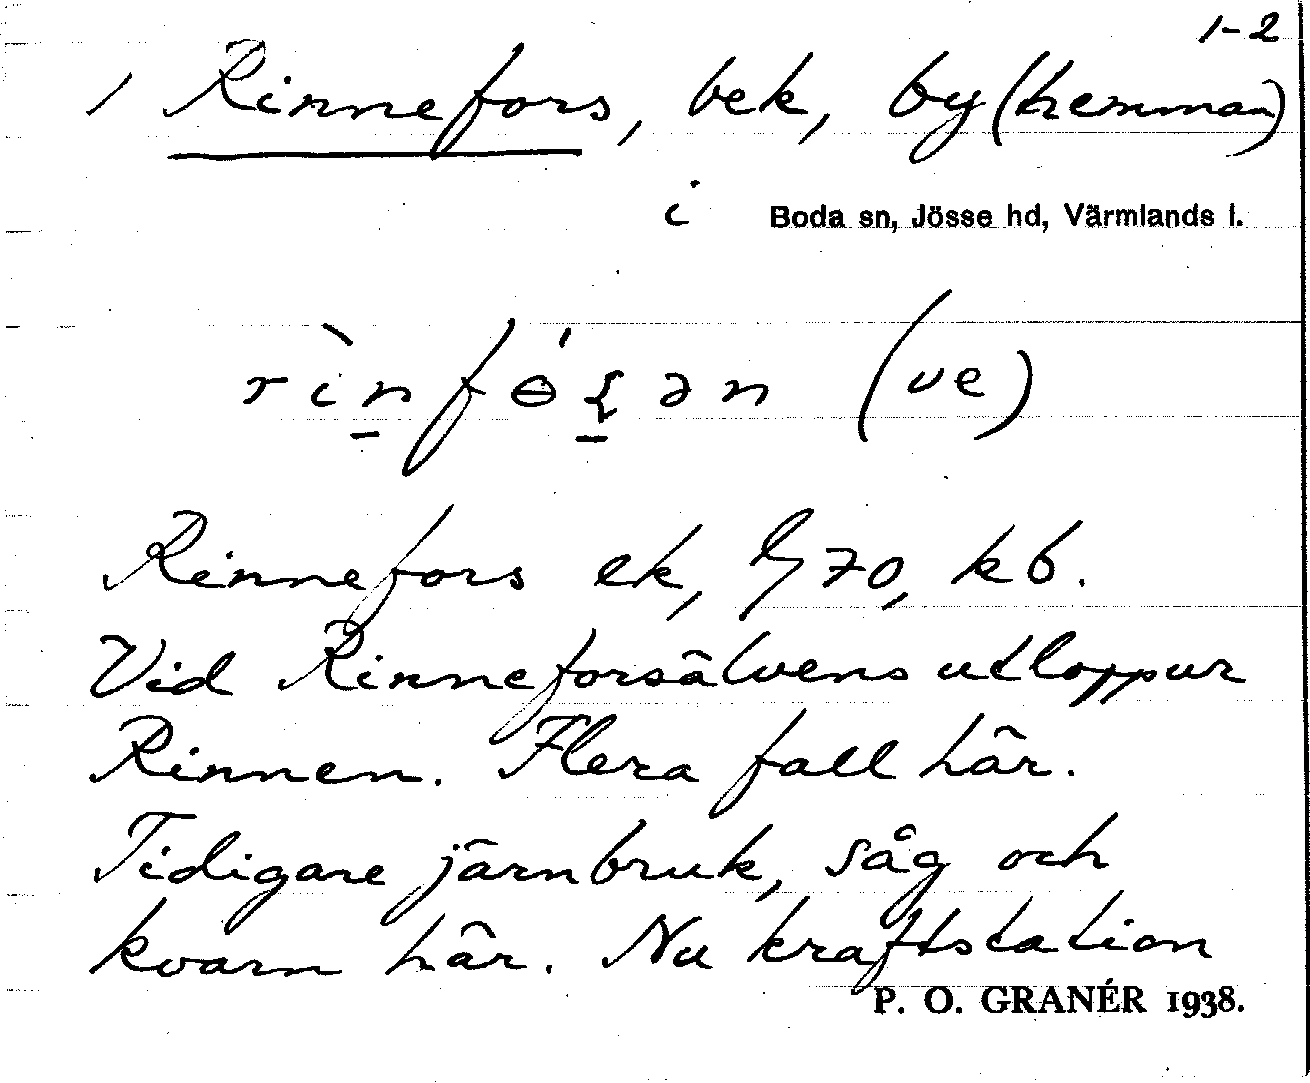 1-2
1 Rinnefors, bek, by (hemman)
i Boda sn, Jösse hd, Värmlands l.
(ve)
Rinnefors ek, G70, kb.
Vid Rinneforsälvens utlopp ur
Rinnen. Flera fall här.
Tidigare järnbruk, såg och
kvarn här. Nu kraftstation
P. O. GRANÉR 1938.